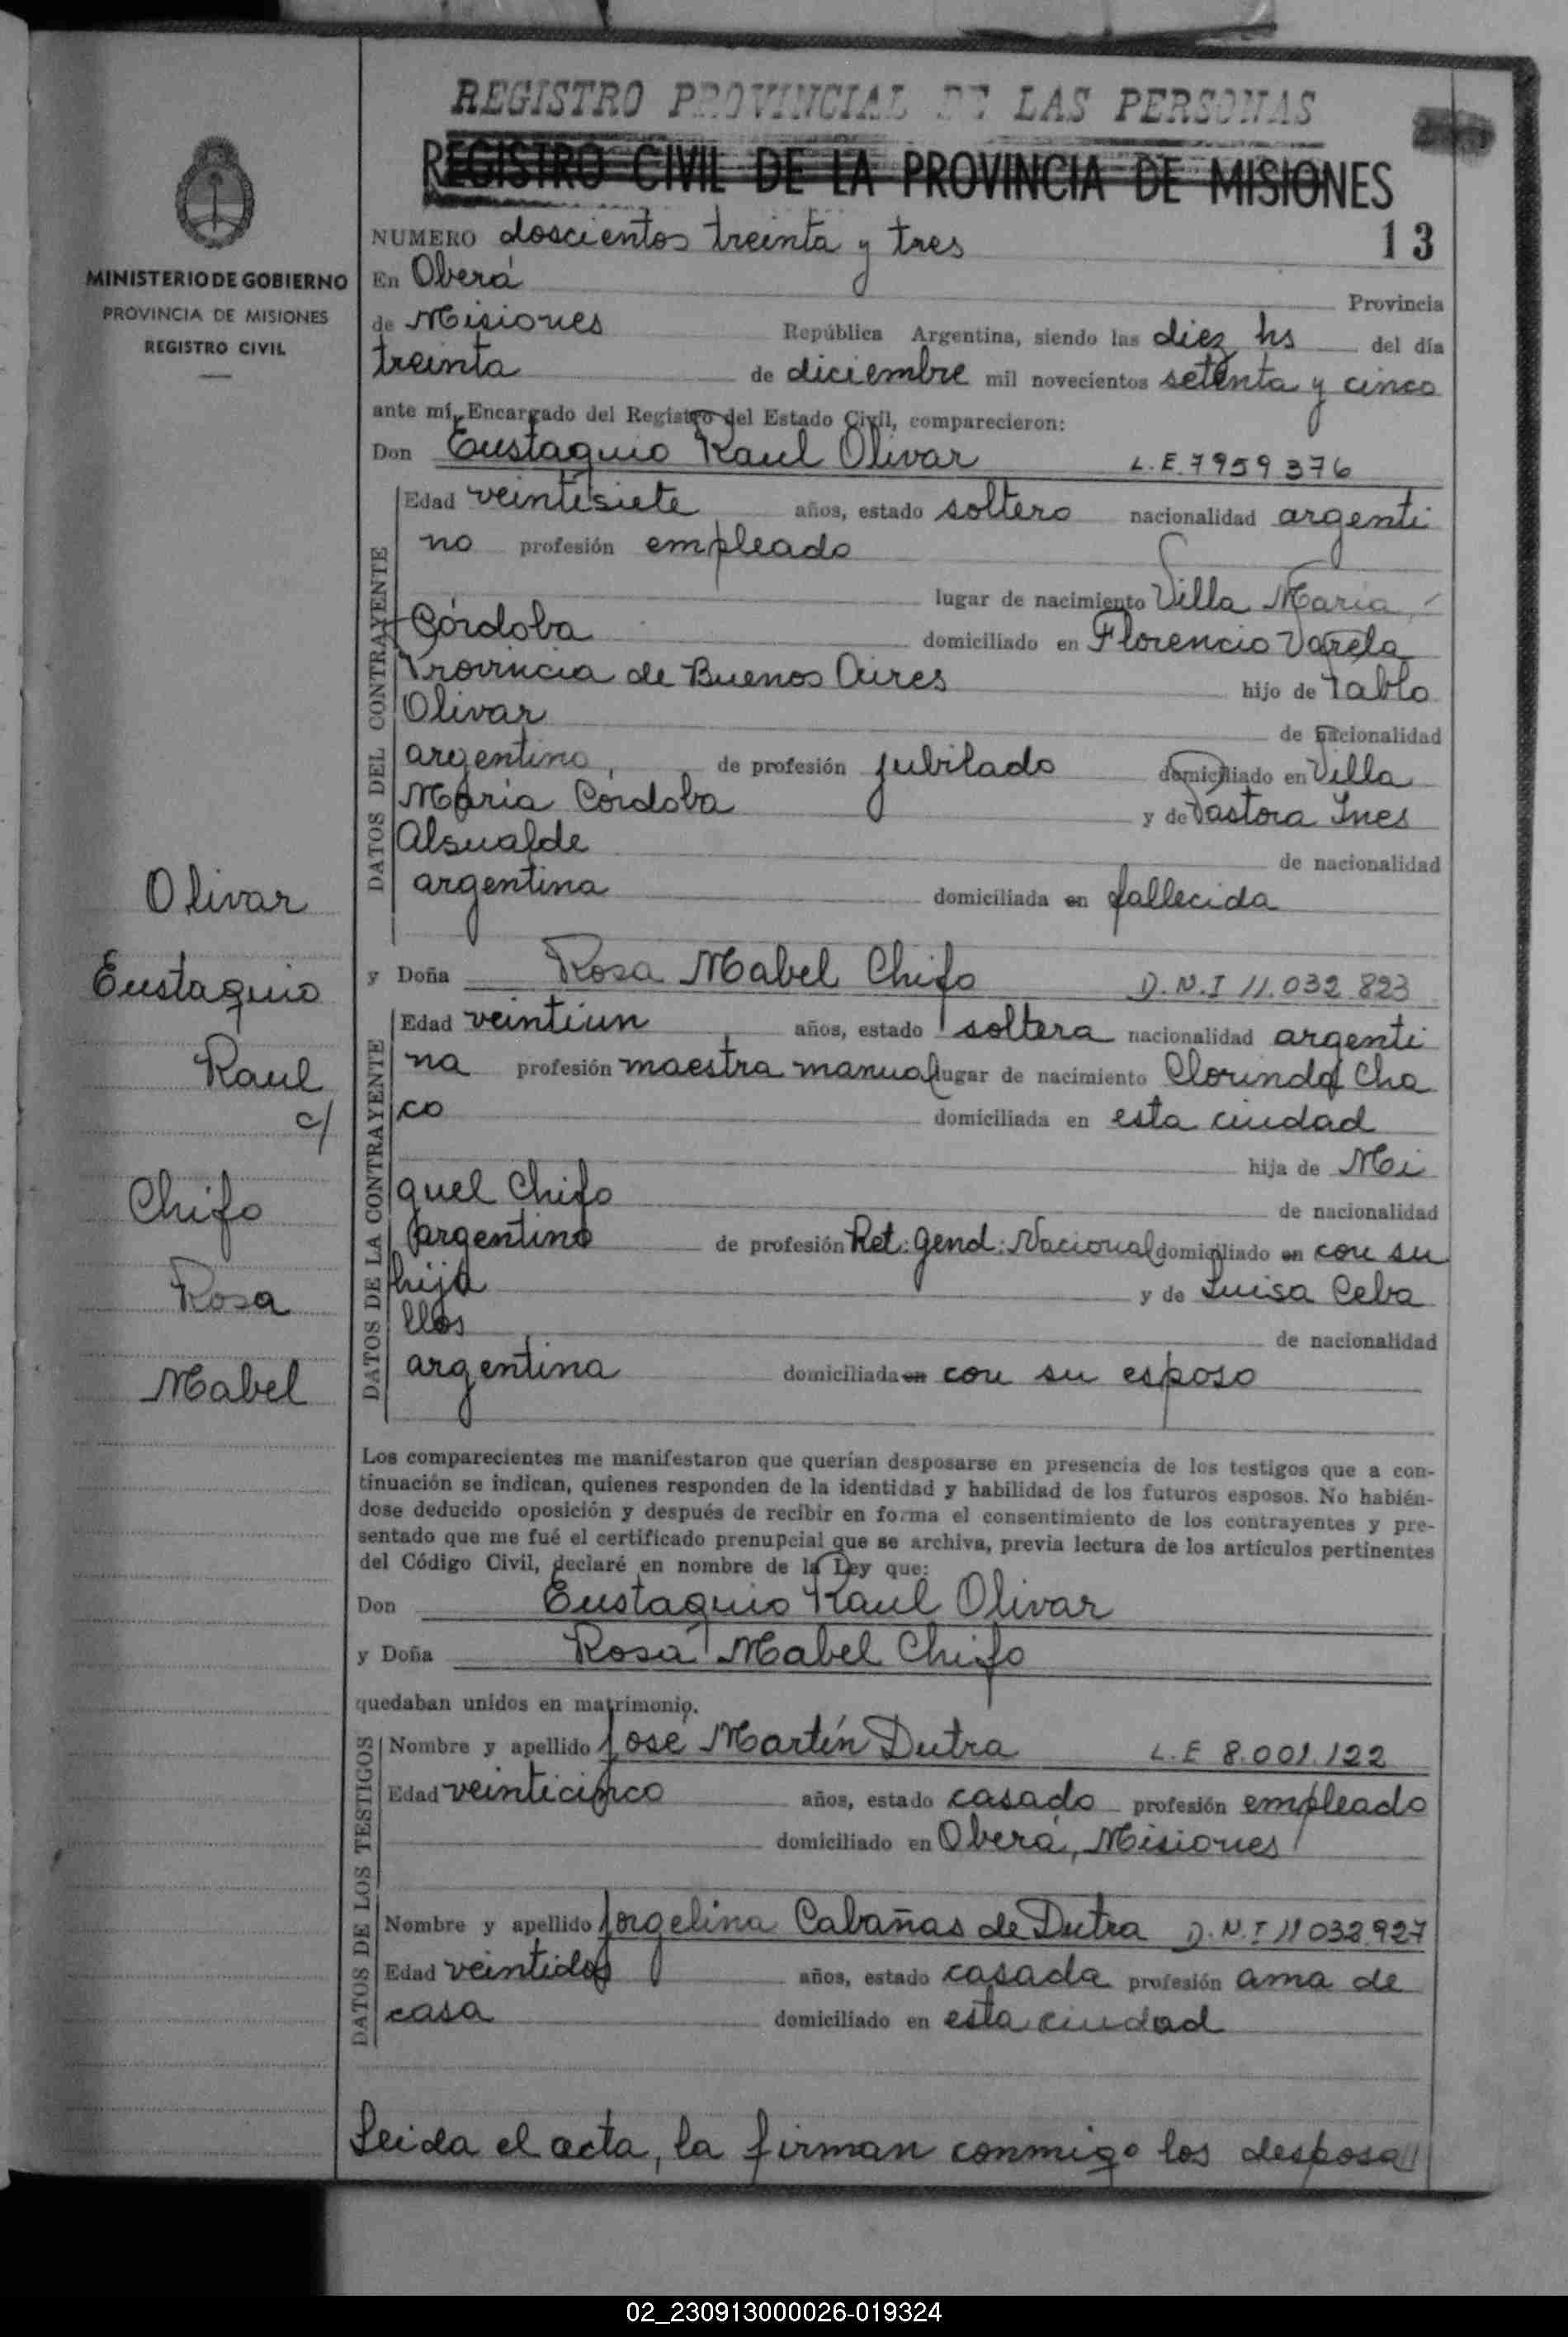 REGISTRO PROVINCIAL DE LAS PERSONAS
REGISTRO CIVIL DE LA PROVINCIA DE MISIONES
MINISTERIO DE GOBIERNO
PROVINCIA DE MISIONES
REGISTRO CIVIL
NUMERO doscientos treinta y tres 13
En Oberá Provincia
de Misiones República Argentina, siendo las diez hs del día
treinta de diciembre mil novecientos setenta y cinco
ante mí, Encargado del Registro del Estado Civil, comparecieron:
Don Eustaquio Raul Olivar L.E. 7959376
DATOS DEL CONTRAYENTE
Edad veintisiete años, estado soltero nacionalidad argenti
no profesión empleado
lugar de nacimiento Villa Maria
Córdoba domiciliado en Florencio Varela
Provincia de Buenos Aires hijo de Pablo
Olivar de nacionalidad
argentino, de profesión jubilado domiciliado en Villa
Maria Córdoba y de Pastora Ines
Alsualde de nacionalidad
argentina domiciliada en fallecida
Olivar
Eustaquio
Raul
c/
Chifo
Rosa
Mabel
y Doña Rosa Mabel Chifo D.N.I 11.032.823
DATOS DE LA CONTRAYENTE
Edad veintiun años, estado soltera nacionalidad argenti
na profesión maestra manual lugar de nacimiento Clorinda Cha
co domiciliada en esta ciudad
hija de Mi
guel Chifo de nacionalidad
argentino de profesión Ret: gend: Nacional domiciliado en con su
hija y de Luisa Ceba
llos de nacionalidad
argentina domiciliada en con su esposo
Los comparecientes me manifestaron que querían desposarse en presencia de los testigos que a con-
tinuación se indican, quienes responden de la identidad y habilidad de los futuros esposos. No habién-
dose deducido oposición y después de recibir en forma el consentimiento de los contrayentes y pre-
sentado que me fué el certificado prenupcial que se archiva, previa lectura de los artículos pertinentes
del Código Civil, declaré en nombre de la Ley que:
Don Eustaquio Raul Olivar
y Doña Rosa Mabel Chifo
quedaban unidos en matrimonio.
DATOS DE LOS TESTIGOS
Nombre y apellido José Martín Dutra L.E 8.001.122
Edad veinticinco años, estado casado profesión empleado
domiciliado en Oberá, Misiones
Nombre y apellido Jorgelina Cabañas de Dutra D.N.I 11032.927
Edad veintidos años, estado casada profesión ama de
casa domiciliado en esta ciudad
Leida el acta, la firman conmigo los desposa
02_230913000026-019324